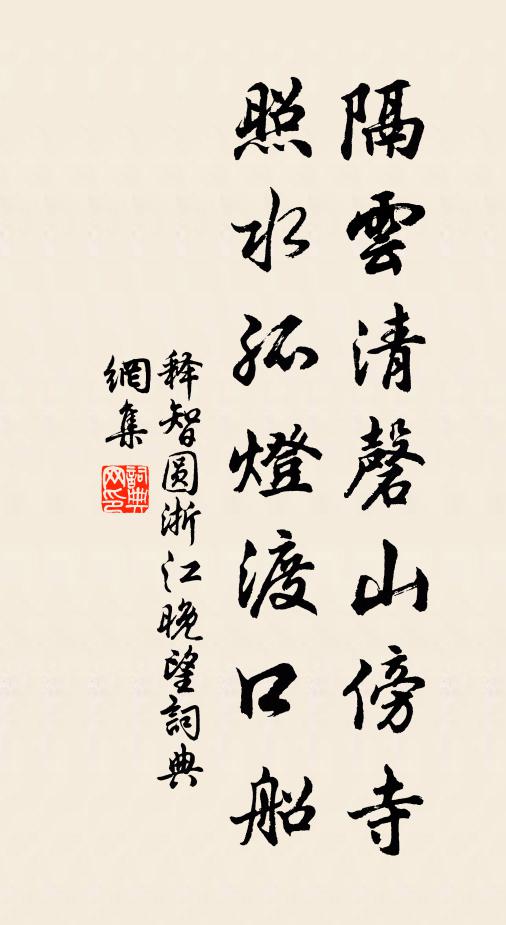 隔雲清磬山傍寺
照水孤燈渡口船
释智圆浙江晚望詞典
網集
詞典
网印